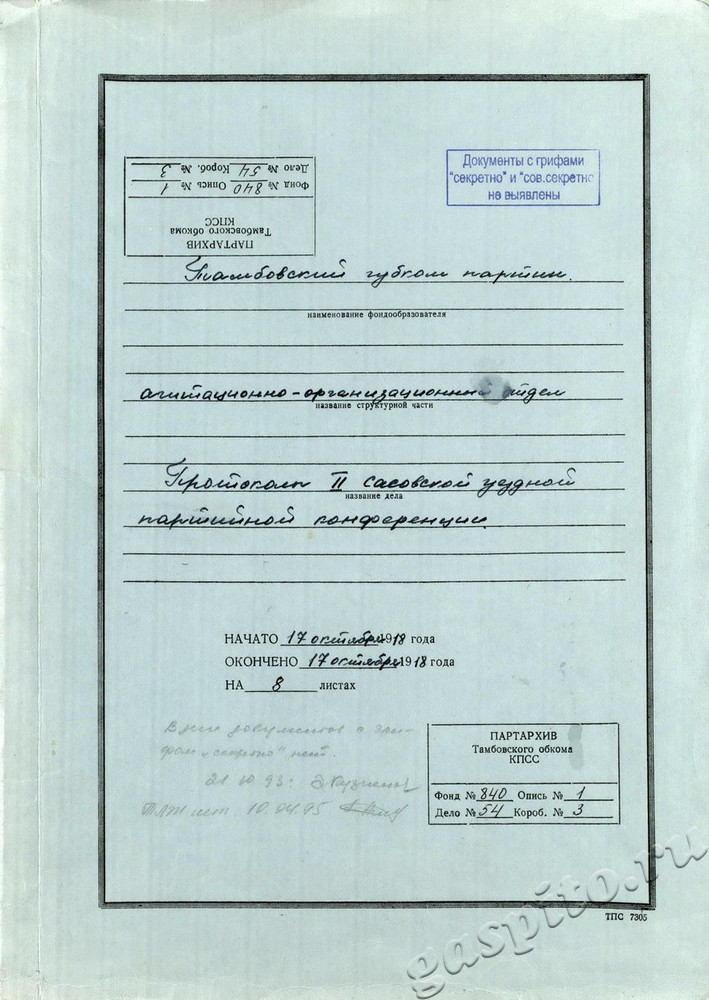 Документы с грифами
"секретно" и "сов.секретно
не выявлены
ПАРТАРХИВ
Тамбовского обкома
КПСС
Фонд № 840 Опись № 1
Дело № 54 Короб. № 3
Тамбовский губком партии.
наименование фондообразователя
агитационно-организационный отдел
название структурной части
Протоколы II Сасовской уездной
название дела
партийной конференции
НАЧАТО 17 октября 1918 года
ОКОНЧЕНО 17 октября 1918 года
НА 8 листах
В деле документов с гри-
фом "секретно" нет.
21.10.93.
10.04.95
ПАРТАРХИВ
Тамбовского обкома
КПСС
Фонд № 840 Опись № 1
Дело № 54 Короб. № 3
ТПС 7305
gaspito.ru